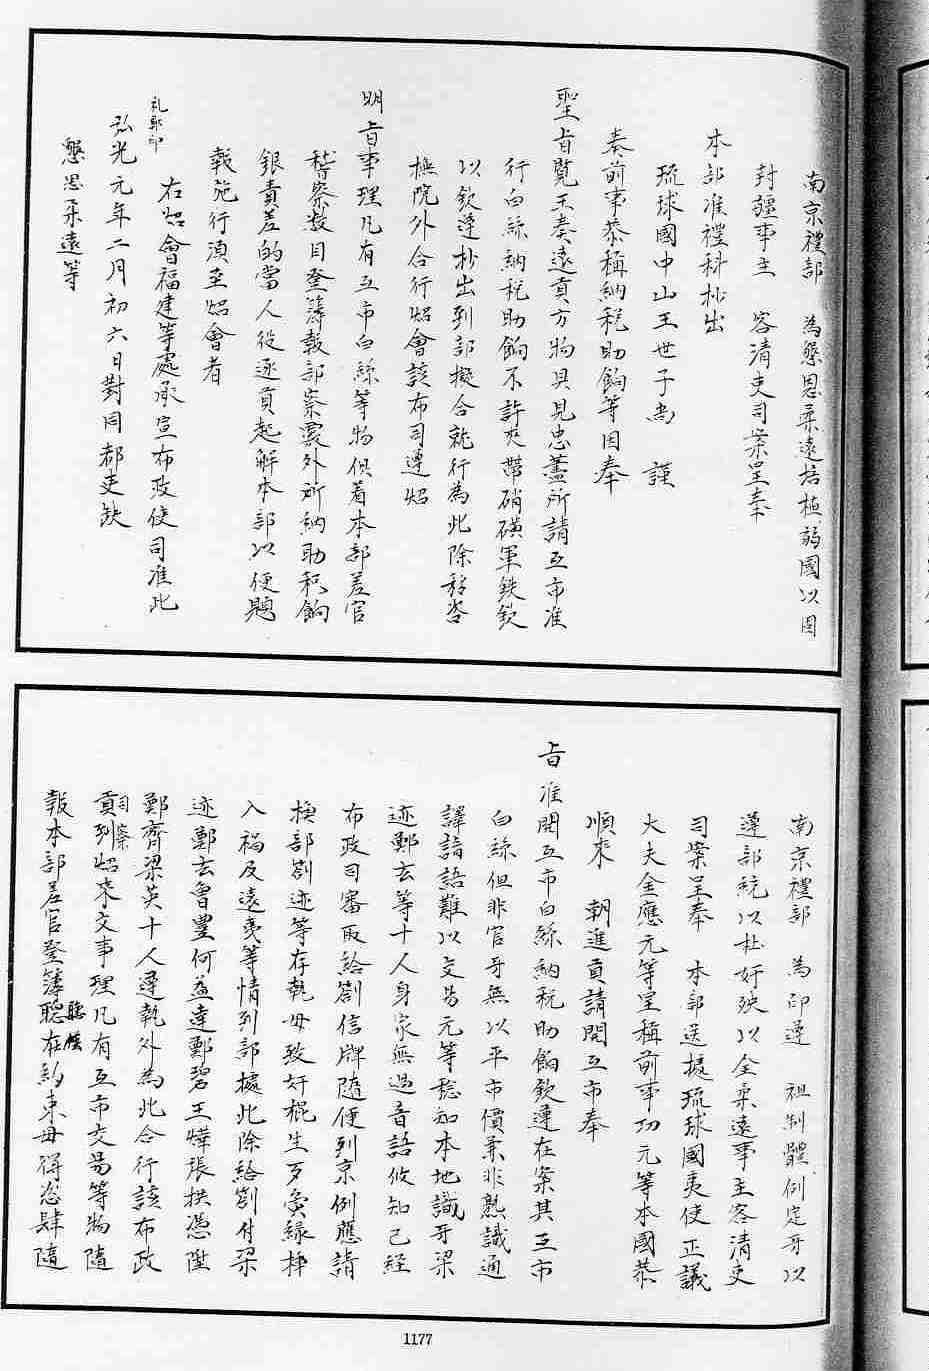 南京禮部　為懇恩柔遠培植弱國以固
封疆事主　客清吏司案呈奉
本部准禮科抄出
琉球國中山王世子尚　謹
奏前事恭稱納稅助餉等因奉
聖旨覽王奏遠貢方物具見忠藎所請互市准
行白絲納稅助餉不許夾帶硝磺軍鉄欽
以欽遵抄出到部擬合就行為此除移咨
撫院外合行炤會該布司遵炤
明旨事理凡有互市白絲等物俱着本部差官
稽察数目登簿報部察覈外所納助和餉
銀責差的當人役逐貢起解本部以便題
報施行湏至炤會者
右炤會福建等處承宣布政使司准此
礼部印
弘光元年二月初六日對同都吏缺
懇恩柔遠等
南京禮部　為卬遵　祖制體例定哥以
遵部統以杜奸殃以全柔遠事主客清吏
司案呈奉　本部送據琉球國夷使正議
大夫金應元等呈稱前事切元等本國恭
順來　朝進貢請開互市奉
旨准開互市白絲納稅助餉欽遵在案其互市
白絲但非官哥無以平市價兼非熟識通
譯語語難以交易元等稔知本地識哥梁
迹鄭玄等十人身家無過音語攸知已經
布政司審取給劄信牌隨便到京例應請
換部劄迹等存執毋致奸棍生歹夤緣挿
入禍及遠夷等情到部據此除給劄付梁
迹鄭玄曾豐何益達鄭碧王燁張拱憑陞
鄭齊梁英十人遵執外為此合行該布政
司案
貢到炤來文事理凡有互市交易等物隨
聽候
報本部差官登簿聽在約束毋得恣肆隨
1177